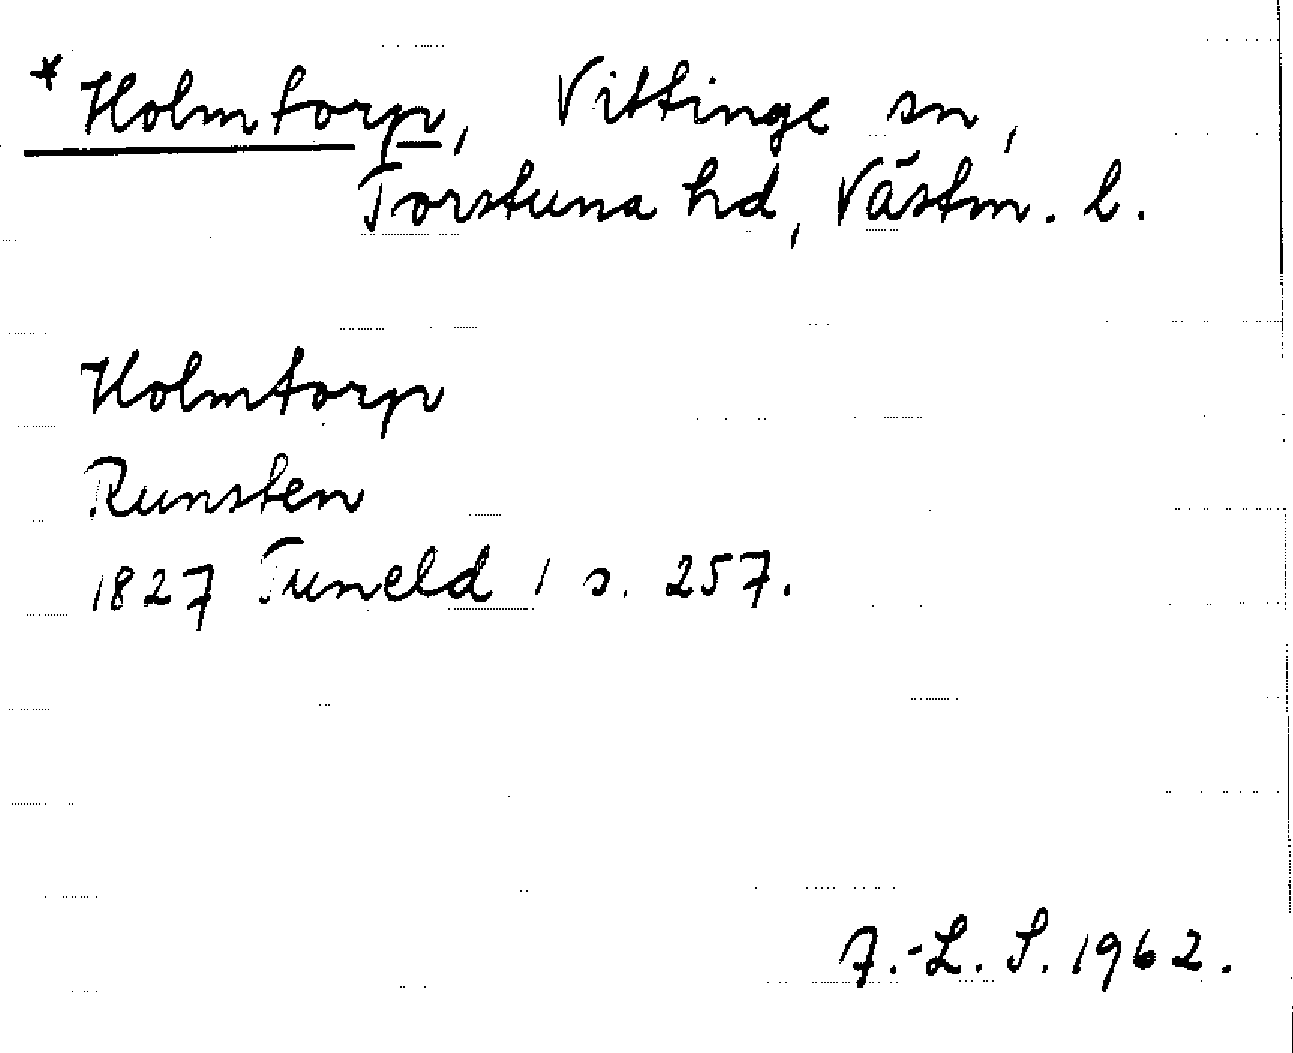 * Holmtorp, Vittinge sn,
Torstuna hd, Västm. l.
Holmtorp
Runsten
1827 Tuneld 1 s. 257.
A.-L. S. 1962.